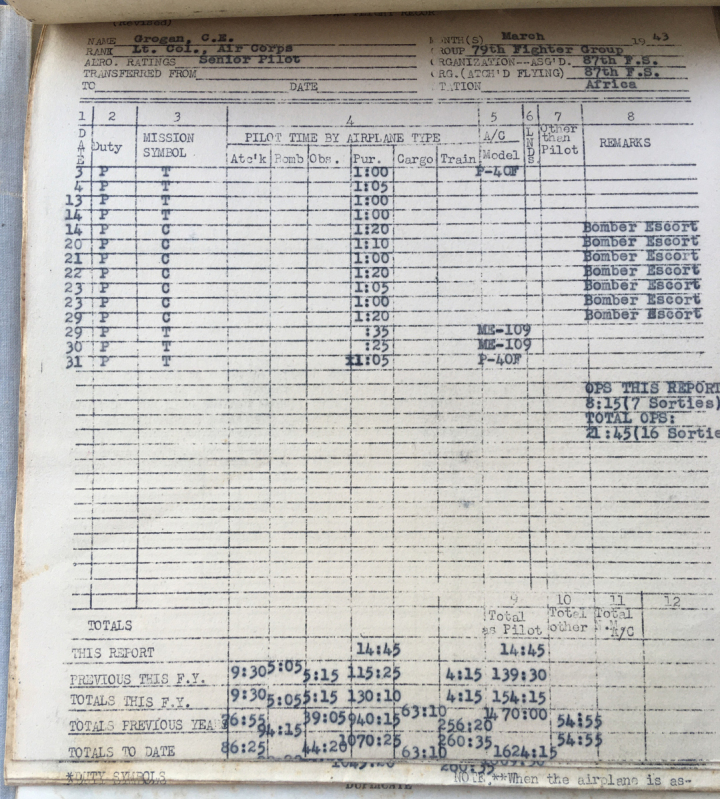 (Revised)
NAME Grogan, C.E. MONTH(S) March 19 43
RANK Lt. Col., Air Corps GROUP 79th Fighter Group
AERO. RATINGS Senior Pilot ORGANIZATION--ASG'D. 87th F.S.
TRANSFERRED FROM ORG.(ATCH'D FLYING) 87th F.S.
TO DATE STATION Africa
1 2 3 4 5 6 7 8
DATE Duty MISSION SYMBOL PILOT TIME BY AIRPLANE TYPE A/C Model LNDS Other than Pilot REMARKS
Atc'k Bomb Obs. Pur. Cargo Train
3 P T 1:00 P-40F
4 P T 1:05
13 P T 1:00
14 P T 1:00
14 P C 1:20 Bomber Escort
20 P C 1:10 Bomber Escort
21 P C 1:00 Bomber Escort
22 P C 1:20 Bomber Escort
23 P C 1:05 Bomber Escort
23 P C 1:00 Bomber Escort
29 P C 1:20 Bomber Escort
29 P T :35 ME-109
30 P T :25 ME-109
31 P T 1:05 P-40F
OPS THIS REPORT
8:15(7 Sorties)
TOTAL OPS:
21:45(16 Sortie
9 10 11 12
TOTALS Total as Pilot Total other Total A/C
THIS REPORT 14:45 14:45
PREVIOUS THIS F.Y. 9:30 5:05 5:15 115:25 4:15 139:30
TOTALS THIS F.Y. 9:30 5:05 5:15 130:10 4:15 154:15
TOTALS PREVIOUS YEARS 76:55 94:15 39:05 940:15 63:10 256:20 1470:00 54:55
TOTALS TO DATE 86:25 44:20 1070:25 63:10 260:35 1624:15 54:55
*DUTY SYMBOLS NOTE **When the airplane is as-
DUPLICATE